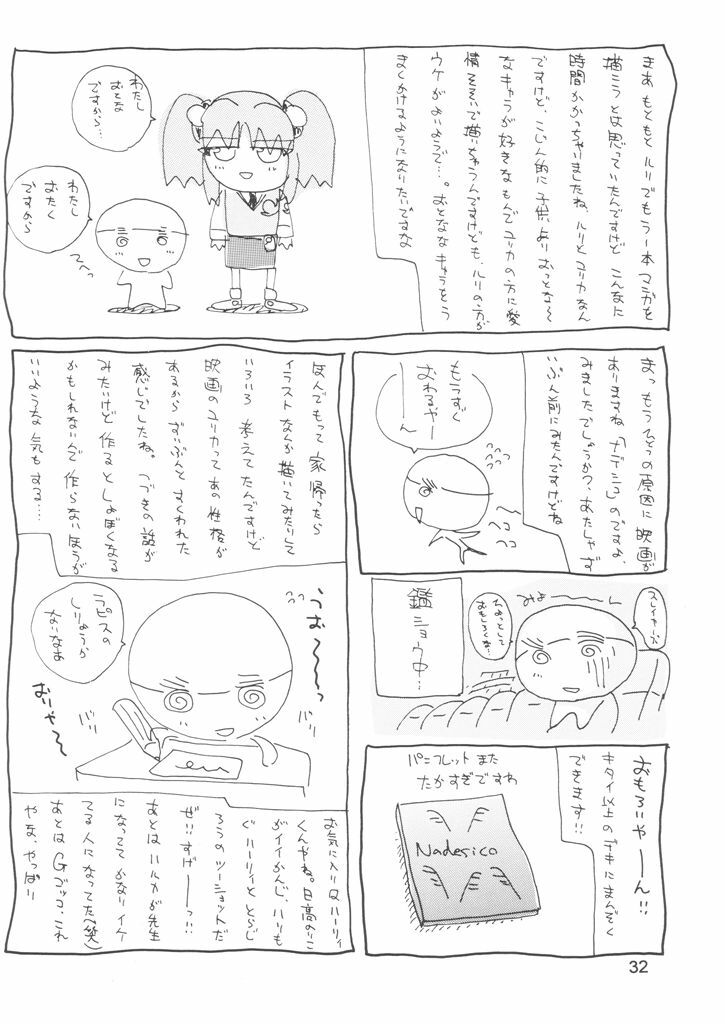 まあ もともと ルリでもう一本 マンガを
描こうとは思っていたんですけど こんなに
時間かかっちゃいましたね、ルリとユリカなん
ですけど、こじん的に子供よりおっとな〜
なキャラが好きなもんでユリカの方に愛
情そそいで描いちゃうんですけども、ルリの方が
ウケがよいようで…。おとななキャラをう
まくかけるようになりたいですな
わたし
おとな
ですから…
わたし
おたく
ですから
てへっ
まっ もうひとつの原因に 映画が
ありますね「ナデシコ」のですよ、
みましたでしょうか?、あたしゃず
いぶん前にみたんですけどね
もうすぐ
おわるやー
ーん
ヘコ
ヘコ
スレイヤーズ
みょ〜〜ん
ひょっとして
おもしろくな…
鑑ショウ中…
おもろいやーーん!!
キタイ以上のデキにまんぞく
できます!!
パンフレットまた
たかすぎですわ
Nadesico
ほんでもって 家帰ったら
イラストなんか描いてみたりして
いろいろ 考えてたんですけど
映画のユリカって あの性格が
あるから ずいぶんと すくわれた
感じでしたね。つづきの話が
みたいけど 作ると しょぼくなる
かもしれないんで 作らないほうが
いいような 気もする…
うお〜〜っ
ラピスの
しりょうが
ないなあ
おりゃ〜
バリ
バリ
お気に入りはハーリィ
くんやね。日高のりこ
がイイかんじ、ハリも
ぐハーリィと とらじ
ろうのツーショットだ
ぜ!!すげーーっ!!
あとは ハルカが先生
になってて かなりイケ
てる人になってた(笑)
あとは Gゴッコ、これ
やね、やっぱり
32